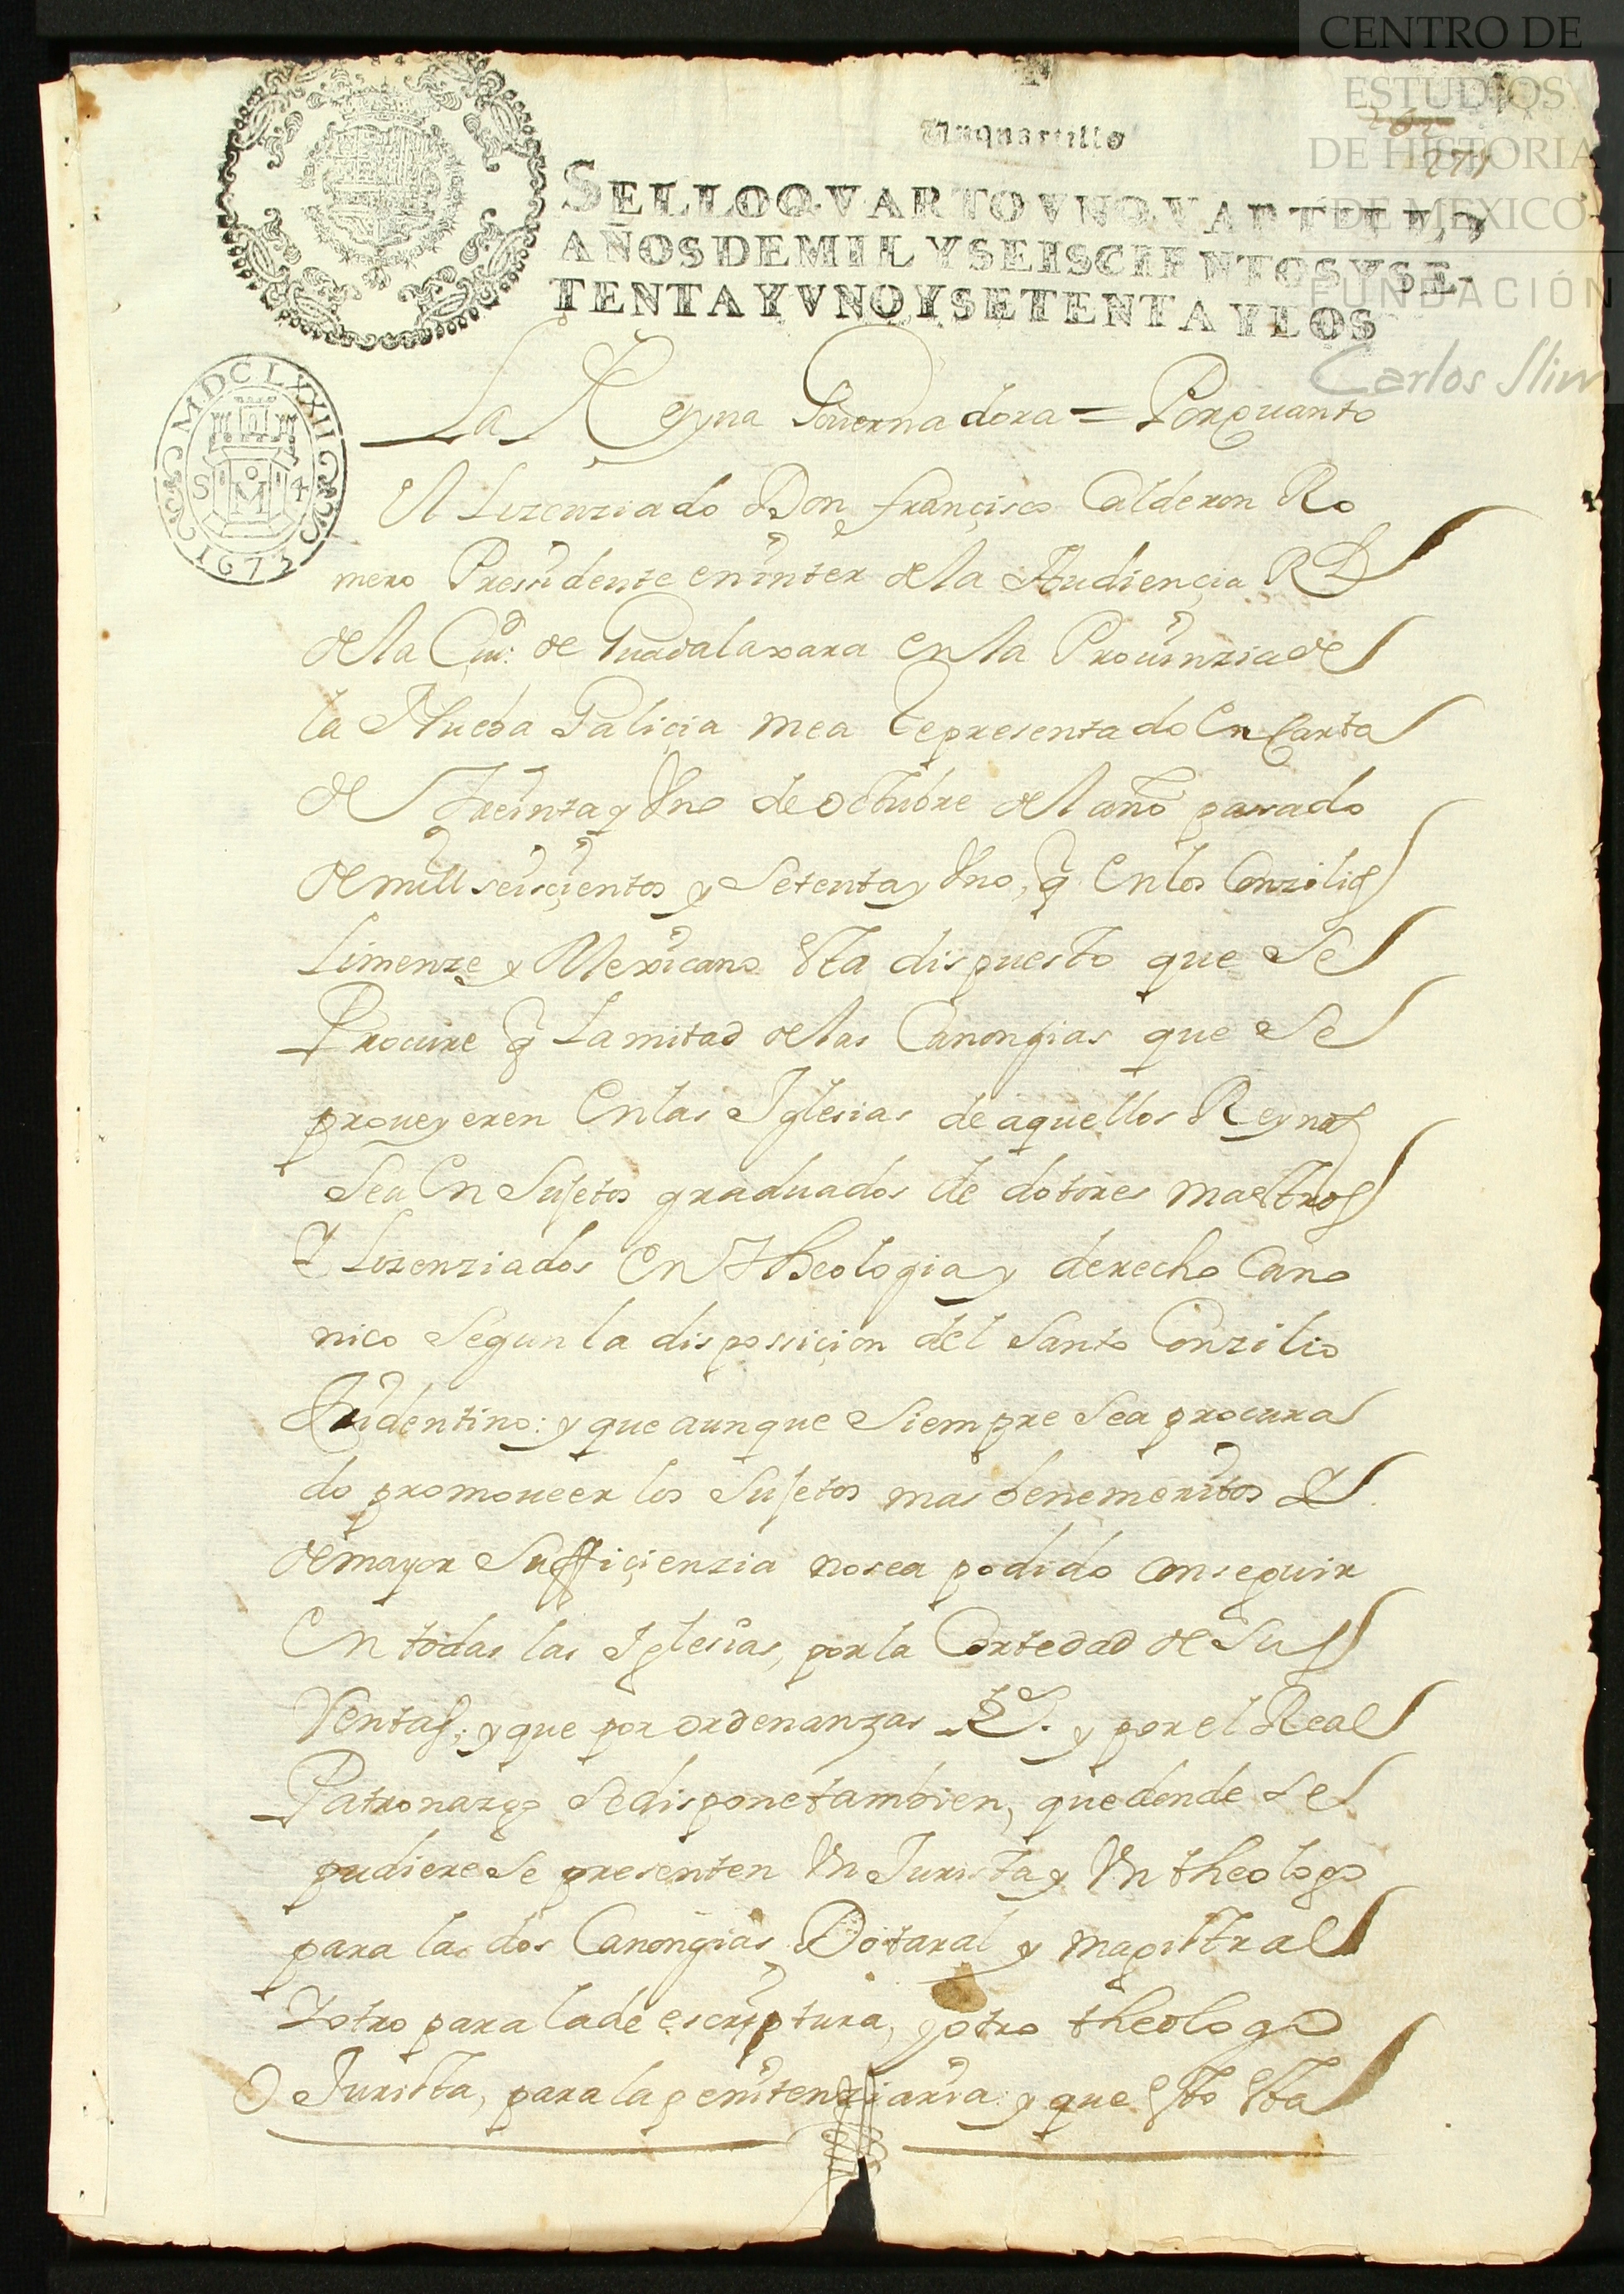 CENTRO DE
ESTUDIOS
DE HISTORIA
DE MEXICO
FUNDACIÓN
Carlos Slim
271
Vnquartillo
SELLO QVARTO VNQVARTILLO,
AÑOS DE MIL Y SEISCIENTOS Y SE-
TENTA Y VNO Y SETENTA Y DOS
MDCLXXII
S M 4
1672
La Reyna Gouernadora = Porquanto
el Lizenziado Don françisco Calderon Ro
mero Pressidente eninter dela Audiençia Rl
dela Ciud. de Guadalaxara en la Prouinziade
la Nueba Galiçia mea Representado En Carta
de Treinta y Vno de octubre del año pasado
de mill seisçientos y Setenta y Vno, q̃ En los Conzilios
Limenze y Mexicano Esta dispuesto que Se
Procure q̃ La mitad delas Canongias que Se
proueyeren En las Iglesias de aquellos Reynos
Sea En Sujetos graduados de dotores maestros
Y Lizenziados En Theologia y derecho Cano
nico Segun la dispossiçion del Santo Conzilio
Tridentino: y que aunque Siempre Sea procura
do promoueer los Sujetos mas benemeritos Y
de mayor Suffiçienzia nosea podido Conseguir
En todas las Iglesias, por la Cortedad de Sus
Rentas; y que por ordenanzas Rs. y por el Real
Patronazgo Sedispone tambien, que donde Se
pudiere Se presenten Vn Jurista y Vn theologo
para las dos Canongias Dotoral y magistral
Y otro para lade escriptura, y otro theologo
O Jurista, para la penitenziaria: y que Esto Esta